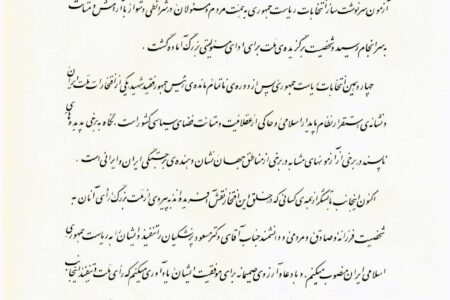 آزمون سرنوشت‌ساز انتخابات ریاست جمهوری به همت مردم و مسئولان در شرائطی دشوار با آرامش و متانت
به سرانجام رسید و شخصیت برگزیده‌ی ملت برای ادای مسئولیتی بزرگ آماده گشت.
چهاردهمین انتخابات ریاست جمهوری پس از دوره‌ی ناتمام مانده‌ی رئیس جمهور فقید شهید یکی از افتخارات ملت ایران
و نشانه‌ی استقرار نظام پایدار اسلامی و حاکی از عقلانیت و متانت فضای سیاسی کشور است. نگاه به برخی پدیده‌های
ناپسند در برخی از آزمونهای مشابه در برخی از مناطق جهان نشان دهنده‌ی برجستگی ایران و ایرانی است.
اکنون اینجانب با تشکر از همه‌ی کسانی که در خلق این افتخار نقش آفریده‌اند به پیروی از ملت بزرگ رأی آنان به
شخصیت فرزانه و صادق و مردمی و دانشمند جناب آقای دکتر مسعود پزشکیان را تنفیذ و ایشان را به ریاست جمهوری
اسلامی ایران منصوب میکنم، و با دعا و آرزوی صمیمانه برای موفقیت ایشان یادآوری میکنم که رأی ملت و تنفیذ اینجانب